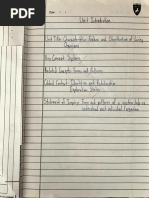 Unit Introduction
Unit Title: Characteristic Features and Classification of Living
Organisms
Key Concept: Systems
Related Concepts: Forms and Patterns
Global Context: Identities and Relationship
Exploration:
Statement of Inquiry: Form and patterns of a system help us
understand and individual